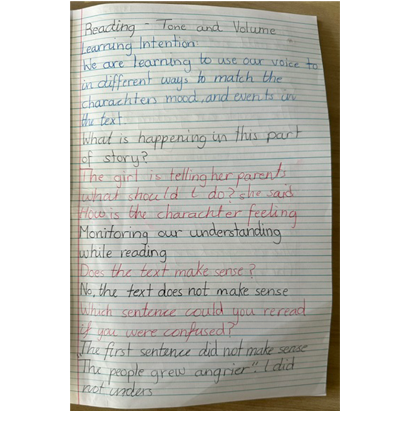 Reading - Tone and Volume
Learning Intention:
We are learning to use our voice to
in different ways to match the
charachters mood, and events in
the text
What is happening in this part
of story?
The girl is telling her parents
"what should I do?" she said
How is the charachter feeling
Monitoring our understanding
while reading
Does the text make sense?
No, the text does not make sense
Which sentence could you reread
if you were confused?
"The first sentence did not make sense
"The people grew angrier". I did
not unders